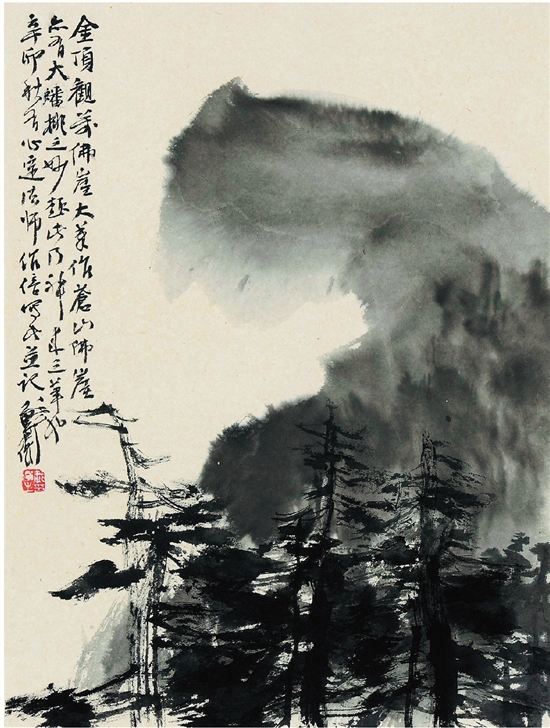 金頂觀萬佛崖大筆作蒼山佛崖
亦有大蟠桃之妙趣此乃神來三筆也
辛卯秋月心達法師作倍寫此並記